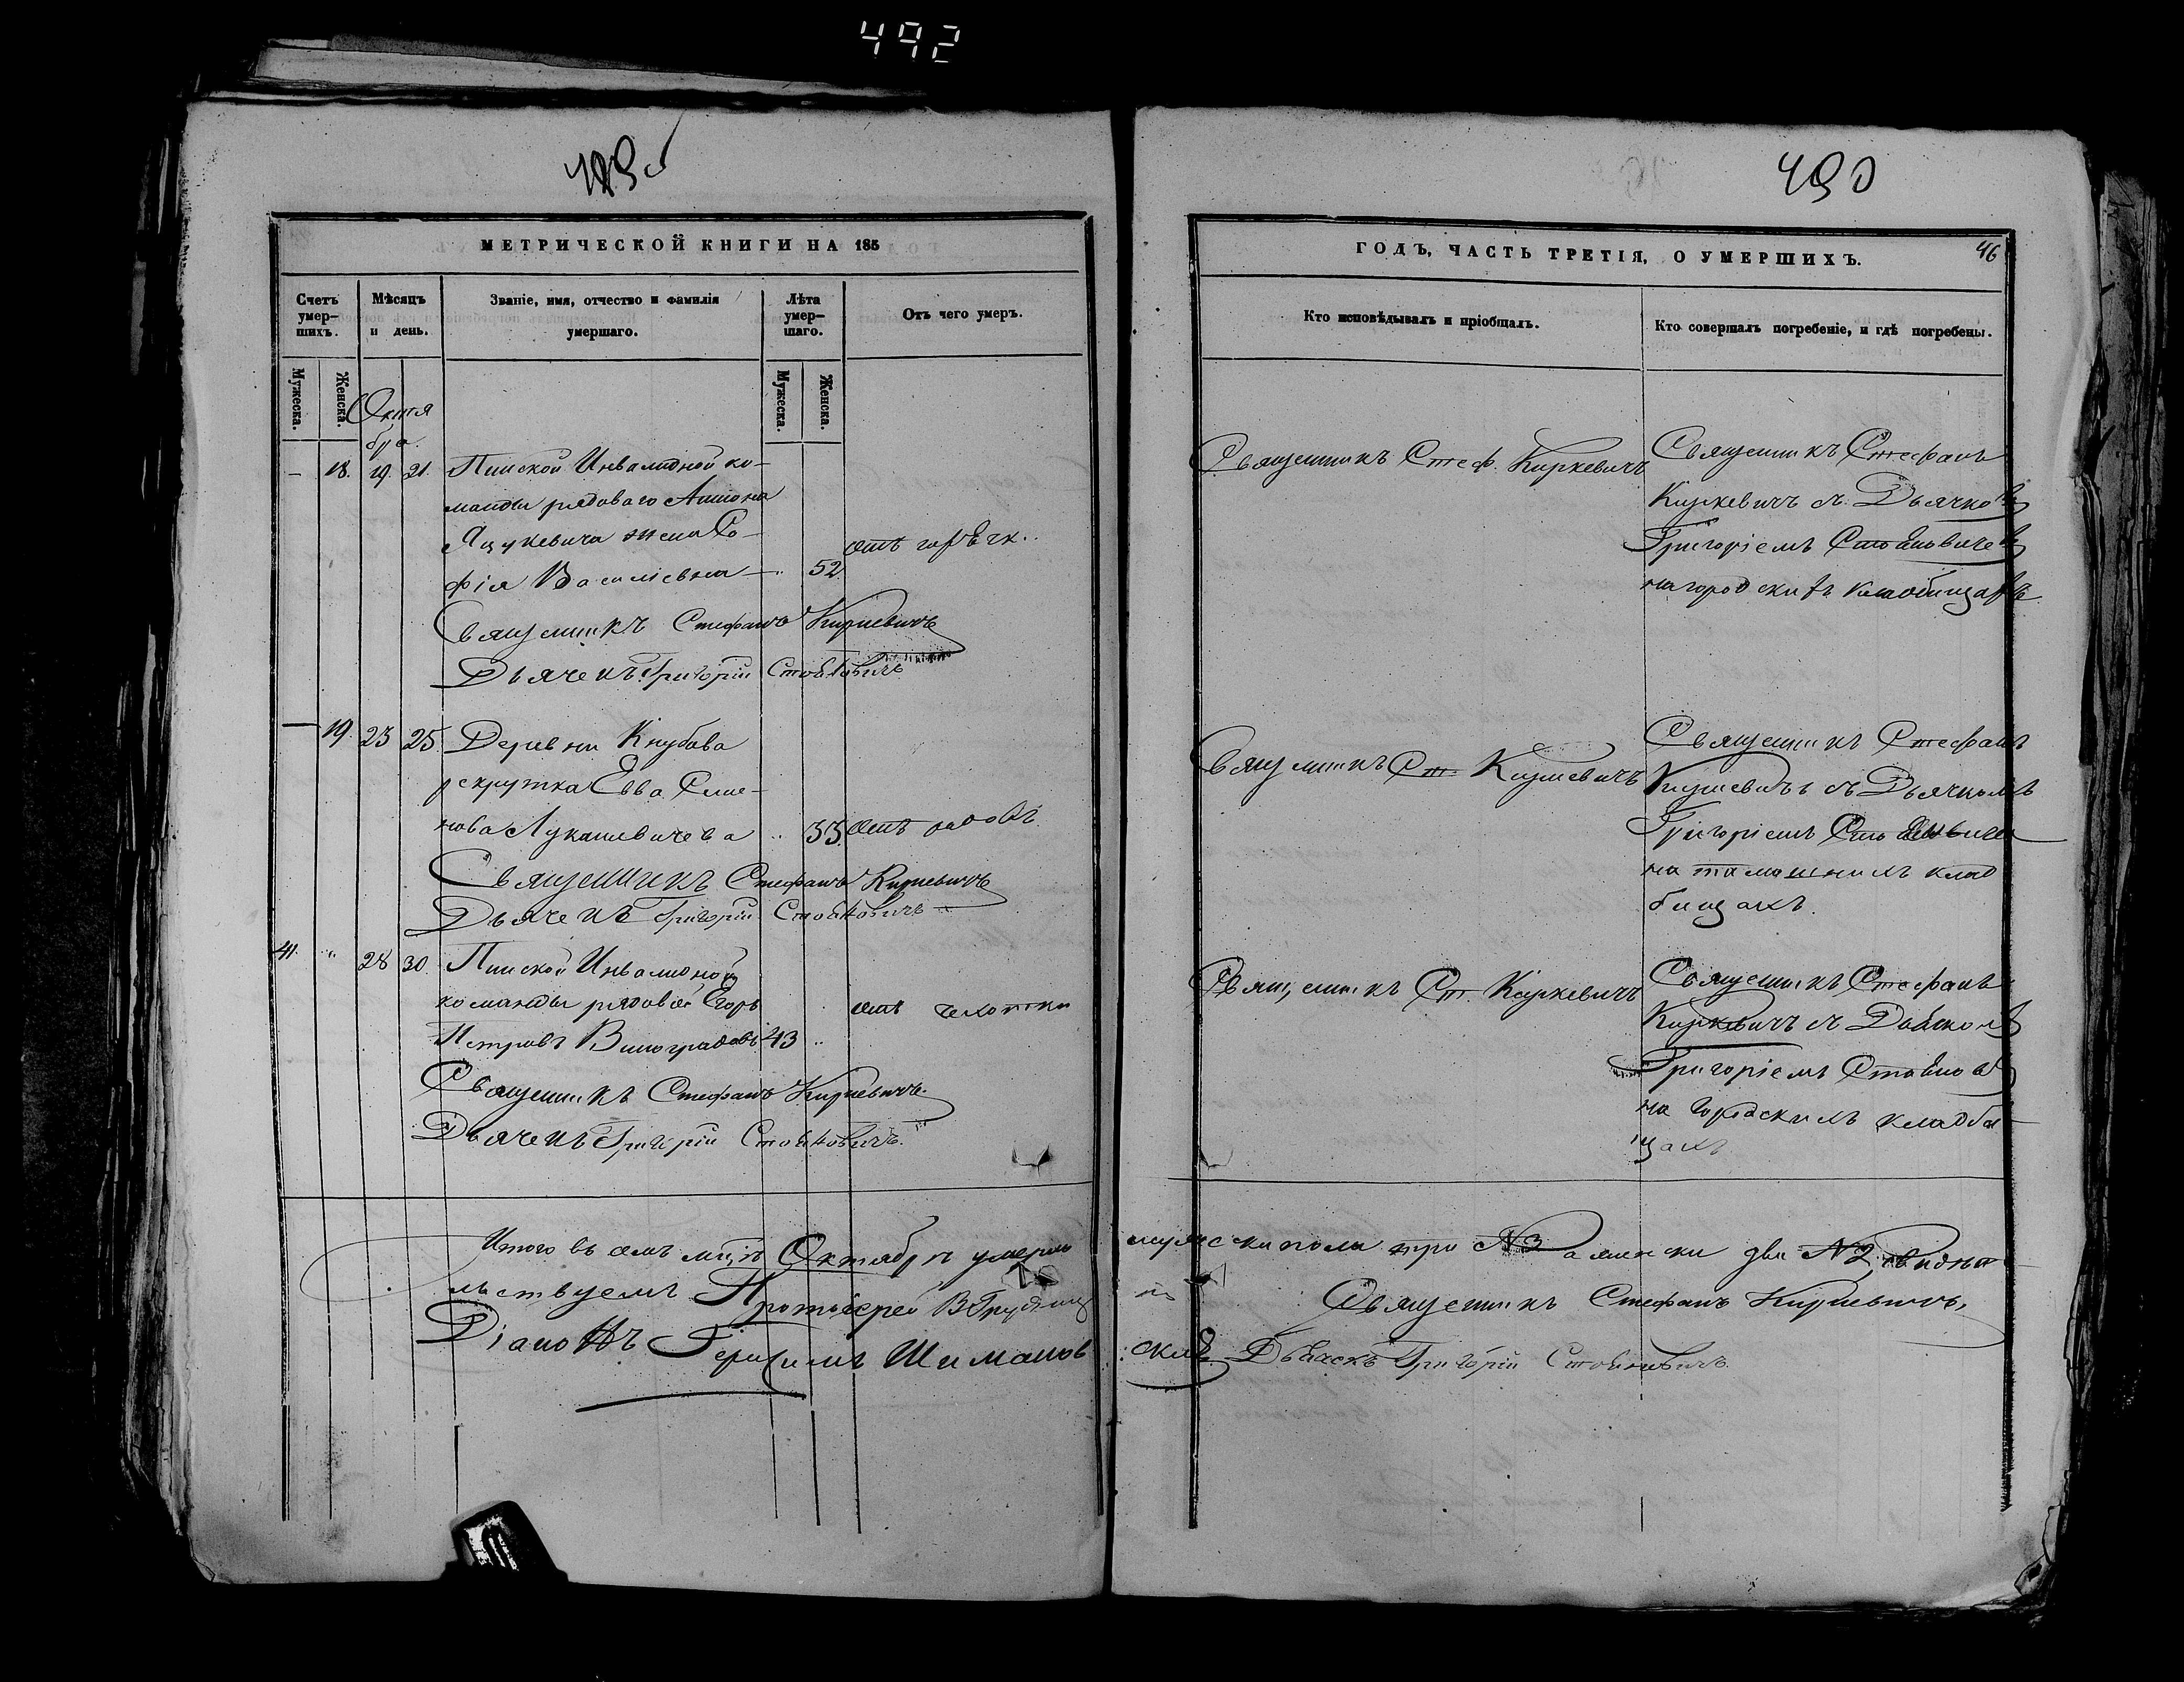 492
490
МЕТРИЧЕСКОЙ КНИГИ НА 185
ГОДЪ, ЧАСТЬ ТРЕТІЯ, О УМЕРШИХЪ.
46
Счетъ умер-шихъ.
Мѣсяцъ и день.
Званіе, имя, отчество и фамилія умершаго.
Лѣта умер-шаго.
Отъ чего умеръ.
Кто исповѣдывалъ и пріобщалъ.
Кто совершалъ погребеніе, и гдѣ погребены.
Мужеска.
Женска.
Мужеска.
Женска.
Октя
бра.
18. 19. 21. Пинской Инвалидной ко-
манды рядоваго Антона
Яцукевича жена Со-
фія Василіевна 52.
отъ горячк..
Священникъ Стефанъ Киркевичъ
Дьячекъ Григорій Стоѣновичъ
Священникъ Стеф. Киркевичъ
Священникъ Стефанъ
Киркевичъ съ Дьячком
Григоріемъ
на городскихъ кладбищахъ
19. 23 25. Деревни Кнубова
рекрутка Евва Семе-
нова Лукашевичева 33. отъ родовъ
Священникъ Стефанъ Киркевичъ
Дьячекъ Григорій
Священникъ Ст. Киркевичъ
Священникъ Стефанъ
Киркевичъ съ Дьячкомъ
Григоріемъ
на тамошнихъ клад
бищахъ.
41. 28 30. Пинской Инвалидной
команды рядовой Егоръ
Петровъ Виноградовъ 43
отъ чахотки
Священникъ Стефанъ Киркевичъ.
Дьячекъ Григорій
Священникъ Ст. Киркевичъ
Священникъ Стефанъ
Киркевичъ съ
Григоріемъ
на городскихъ кладби
щахъ
Итого въ семъ мцѣ Октябрѣ умерло мужеска пола три №3 а женска два №2,
льствуемъ Протоіерей
Священникъ Стефанъ Киркевичъ,
Діаконъ Герасимъ Шимановскій
Григорій